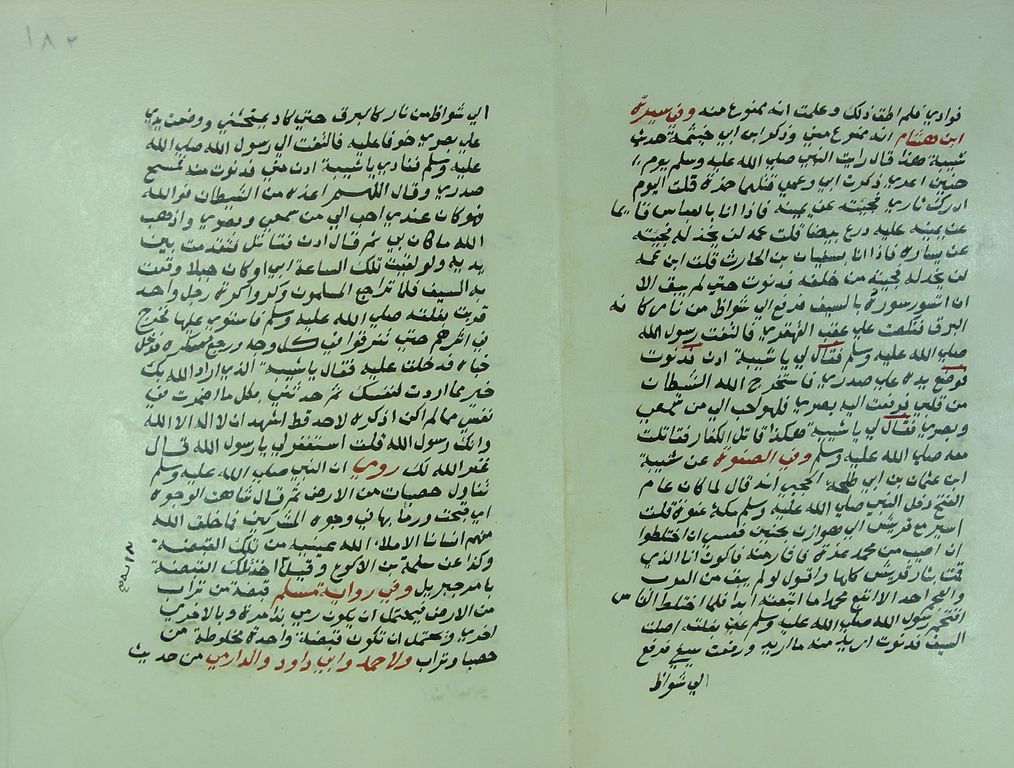 فوادي فلم اطق ذلك وعلمت انه ممنوع منه وفي سيرة
ابن هشام انه ممنوع مني وذكر ابن ابي خيثمة حديث
شيبة هذا قال رايت النبي صلى الله عليه وسلم يوم
حنين اعري ذكرت ابي وعمي قتلهما حمزة قلت اليوم
ادرك ثاري فجيته عن يمينه فاذا انا بالعباس قايما
عن يمينه عليه درع بيضا قلت عمه لن يخذله فجيته
عن يساره فاذا انا بسفيان بن الحارث قلت ابن عمه
لن يخذله فجيته من خلفه فدنوت حتى لم يبق الا
ان اتسور سورة بالسيف فرفع الي شواظ من نار كانه
البرق فنكصت على عقبي القهقري فالتفت رسول الله
صلى الله عليه وسلم فقال لي يا شيبة ادن فدنوت
فوضع يده على صدري فاستخرج الله الشيطان
من قلبي فرفعت اليه بصري فلهو احب الي من سمعي
وبصري فقال لي يا شيبة هكذا قاتل الكفار فقاتلت
معه صلى الله عليه وسلم وفي الصفوة عن شيبة
ابن عثمان بن ابي طلحة الحجبي انه قال لما كان عام
الفتح دخل النبي صلى الله عليه وسلم مكة عنوة قلت
اسير مع قريش الى هوازن بحنين فعسى ان اختلطوا
ان اصيب من محمد غرة فاثار منه فاكون انا الذي
قمت بثار قريش كلها واقول لو لم يبق من العرب
والعجم احد الا اتبع محمدا ما اتبعته ابدا فلما اختلط الناس
اقتحم رسول الله صلى الله عليه وسلم عن بغلته اصلت
السيف فدنوت اريد منه ما اريد ورفعت سيفي فرفع
الي شواظ
١٨٢
الي شواظ من نار كالبرق حتى كاد يمحشني ووضعت يدي
على بصري خوفا عليه فالتفت الي رسول الله صلى الله
عليه وسلم فنادى يا شيبة ادن مني فدنوت منه فمسح
صدري وقال اللهم اعذه من الشيطان فوالله
لهو كان عندي احب الي من سمعي وبصري واذهب
الله ما كان بي ثم قال ادن فقاتل فتقدمت بين
يديه ولو لقيت تلك الساعة ابي لو كان حيا لاوقعت
به السيف فلما تراجع المسلمون وكروا كرة رجل واحد
قربت بغلته صلى الله عليه وسلم فاستوى عليها فخرج
في اثرهم حتى تفرقوا في كل وجه ورجع معسكره فدخل
خباه فدخلت عليه فقال يا شيبة الذي اراد الله بك
خير مما اردت لنفسك ثم حدثني بكل ما اضمرت في
نفسي مما لم اكن اذكره لاحد قط اشهد ان لا اله الا الله
وانك رسول الله قلت استغفر لي يا رسول الله قال
غفر الله لك روي ان النبي صلى الله عليه وسلم
تناول حصيات من الارض ثم قال شاهت الوجوه
اي قبحت ورما بها في وجوه المشركين فما خلق الله
منهم انسانا الا ملا الله عينيه من تلك القبضة
وكذا عن سلمة بن الاكوع وقيل اخذ تلك القبضة
بامر جبريل وفي رواية لمسلم قبضة من تراب
من الارض فيحتمل ان يكون رمى بذا مرة وبالاخرى
اخرى ويحتمل ان تكون قبضة واحدة مخلوطة من
حصبا وتراب ولاحمد وابي داود والدارمي من حديث